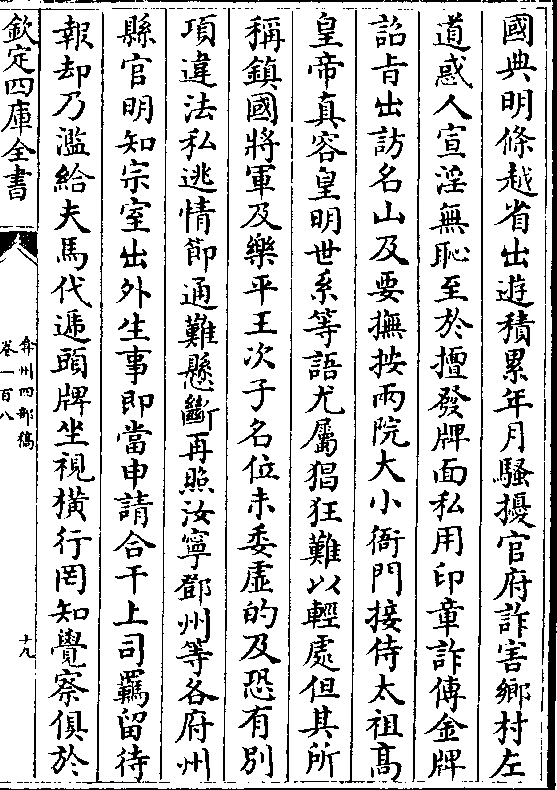 國典明條越省出遊積累年月騷擾官府詐害鄉村左
道惑人宣淫無恥至於擅發牌面私用印章詐傳金牌
詔㫖出訪名山及要撫按兩院大小衙門接侍太祖高
皇帝真容皇明世系等語尤屬猖狂難以輕處但其所
稱鎮國將軍及樂平王次子名位未委虛的及恐有別
項違法私逃情節通難懸斷再照汝寧鄧州等各府州
縣官明知宗室出外生事即當申請合干上司羈留待
報却乃濫給夫馬代遞頭牌坐視橫行罔知覺察俱於
欽定四庫全書
弇州四部稿
卷一百八
十九